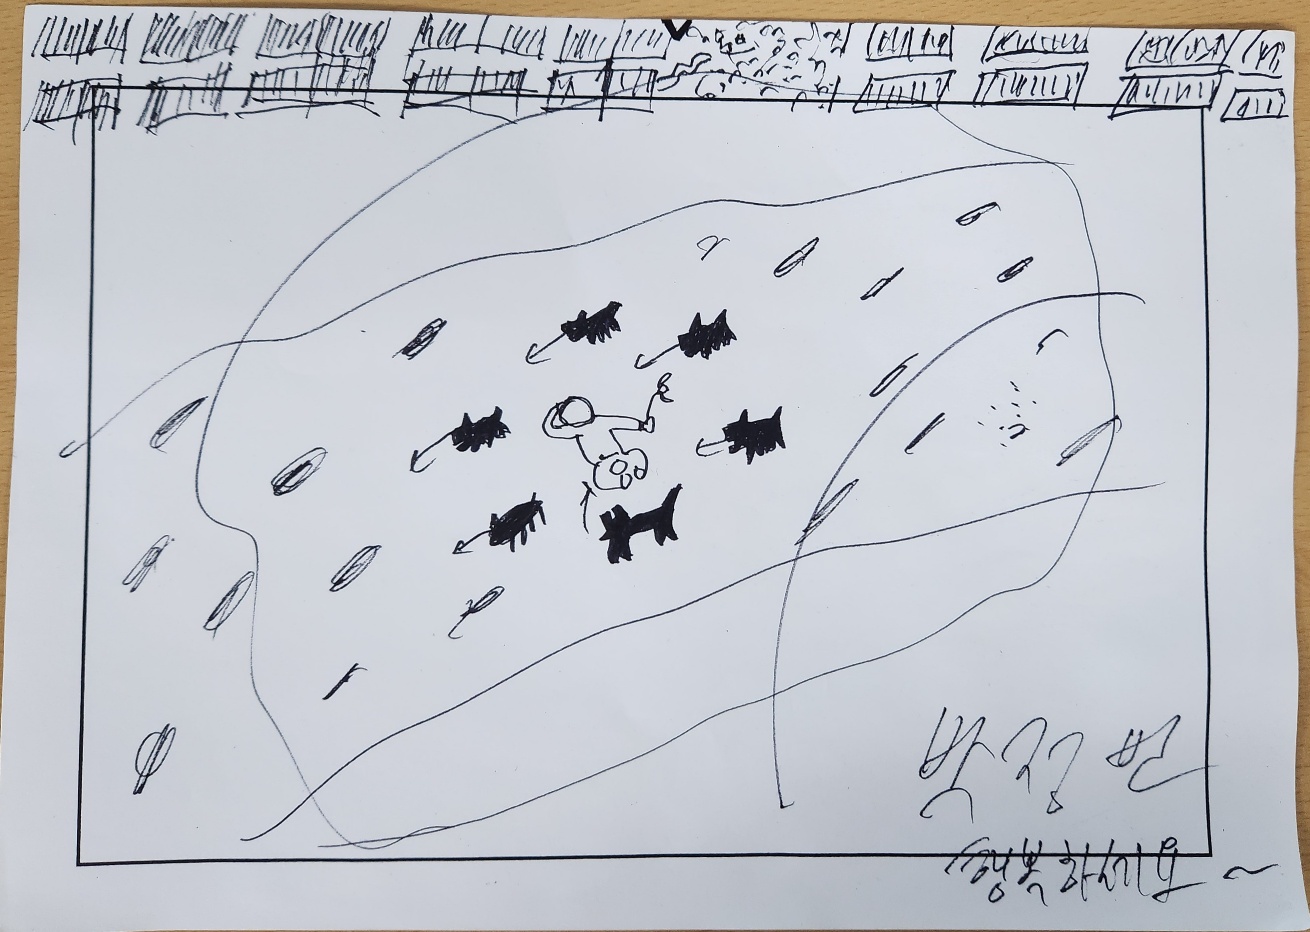 박정빈
행복하세요~